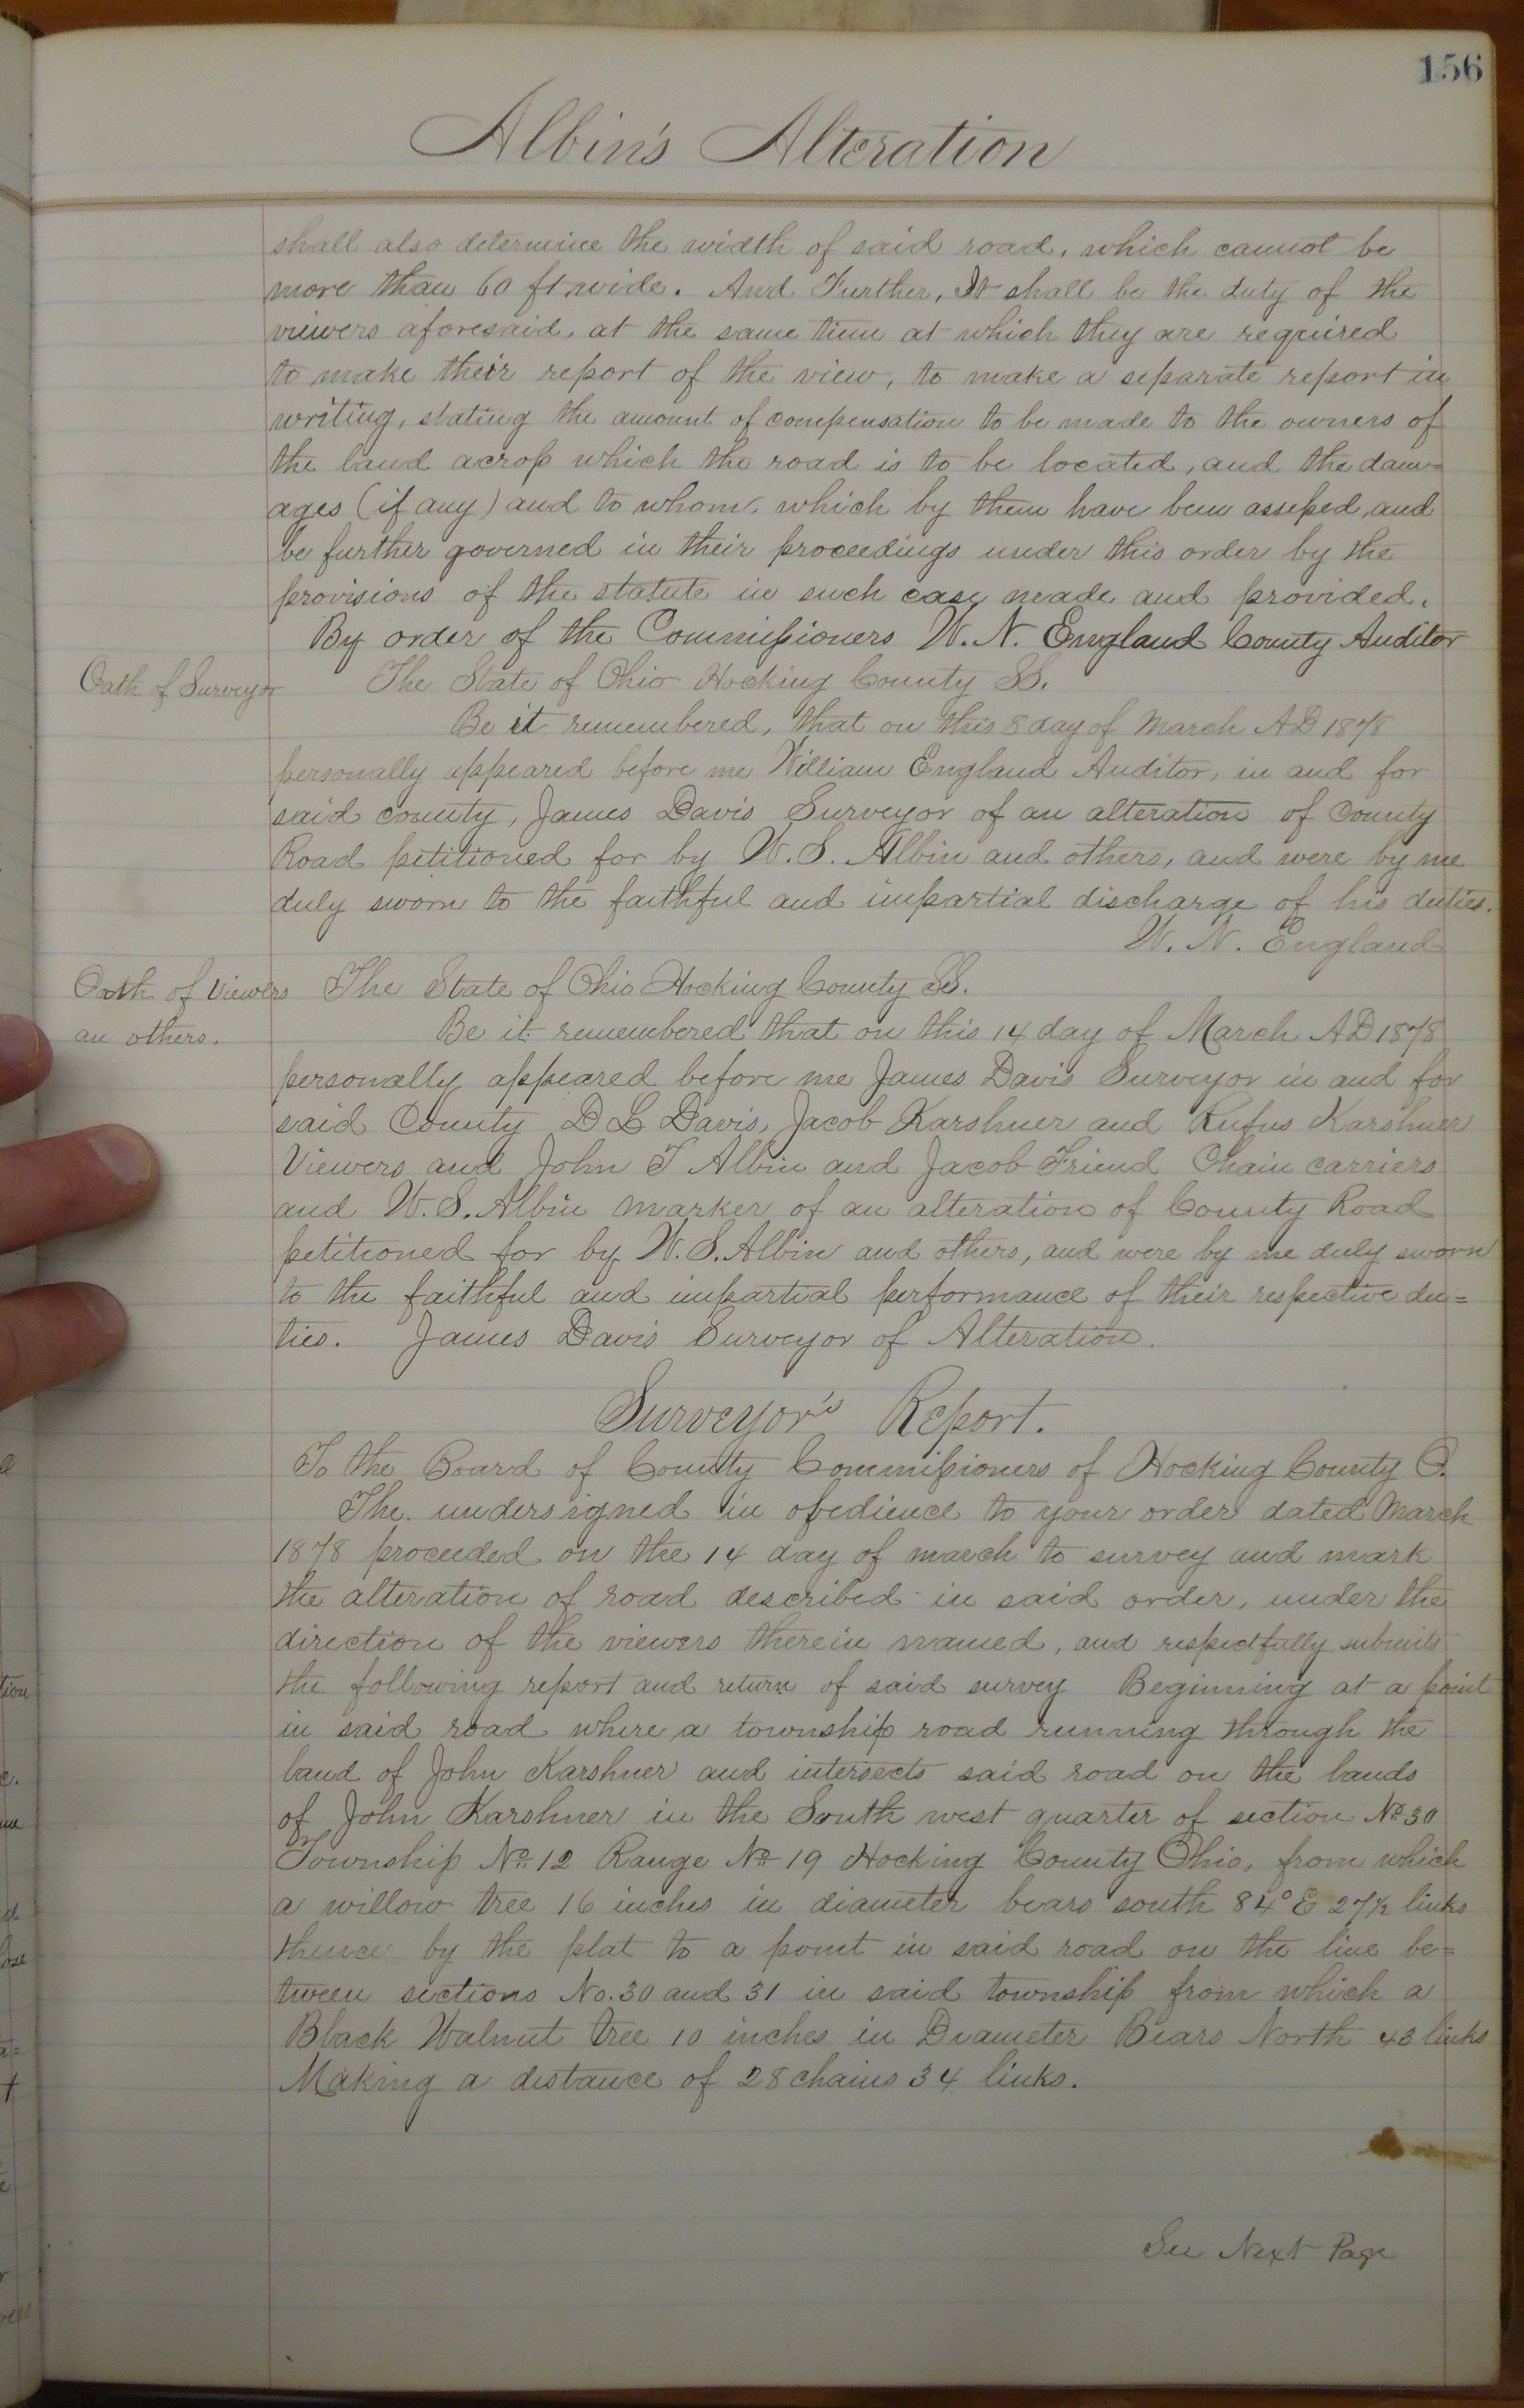 156
Albin's Alteration
shall also determine the width of said road, which cannot be
more than 60 ft wide. And Further, It shall be the duty of the
viewers aforesaid, at the same time at which they are required
to make their report of the view, to make a separate report in
writing, stating the amount of compensation to be made to the owners of
the land across which the road is to be located, and the dam=
ages (if any) and to whom, which by them have been assessed, and
be further governed in their proceedings under this order by the
provisions of the statute in such case made and provided.
By order of the Commissioners W. N. England County Auditor
Oath of Surveyor
The State of Ohio Hocking County SS.
Be it remembered, that on this 8 day of March AD 1878
personally appeared before me William England Auditor, in and for
said county, James Davis Surveyor of an alteration of County
Road petitioned for by W. S. Albin and others, and were by me
duly sworn to the faithful and impartial discharge of his duties.
W. N. England
Oath of Viewers
an others.
The State of Ohio Hocking County SS.
Be it remembered that on this 14 day of March AD 1878
personally appeared before me James Davis Surveyor in and for
said County D L Davis, Jacob Karshner and Rufus Karshner
Viewers and John T Albin and Jacob Friend Chain carriers
and W. S. Albin marker of an alteration of County Road
petitioned for by W. S. Albin and others, and were by me duly sworn
to the faithful and impartial performance of their respective du=
ties. James Davis Surveyor of Alteration.
Surveyor's Report.
To the Board of County Commissioners of Hocking County O.
The undersigned in obedience to your order dated March
1878 proceeded on the 14 day of march to survey and mark
the alteration of road described in said order, under the
direction of the viewers therein named, and respectfully submits
the following report and return of said survey Beginning at a point
in said road where a township road running through the
land of John Karshner and intersects said road on the lands
of John Karshner in the South west quarter of section No 30
Township No 12 Range No 19 Hocking County Ohio, from which
a willow tree 16 inches in diameter bears south 84° E 27½ links
thence by the plat to a point in said road on the line be=
tween sections No. 30 and 31 in said township from which a
Black Walnut tree 10 inches in Diameter Bears North 43 links
Making a distance of 28 chains 34 links.
See Next Page